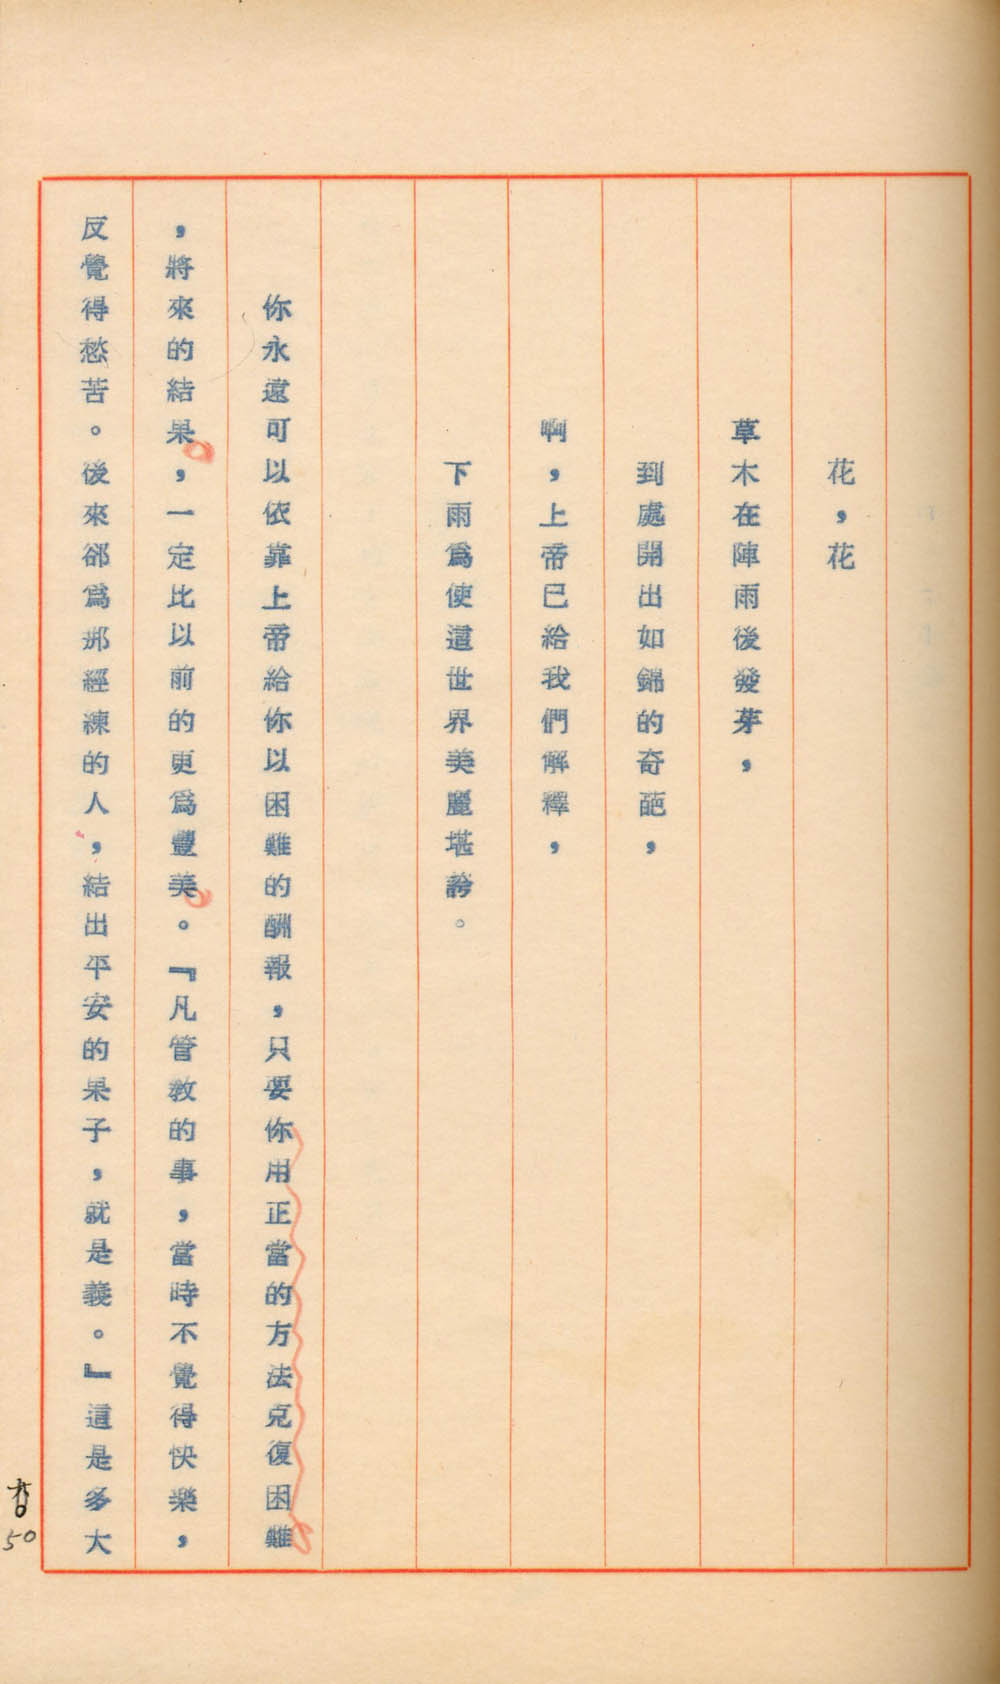 花，花
草木在陣雨後發芽，
到處開出如錦的奇葩，
啊，上帝已給我們解釋，
下雨為使這世界美麗堪誇。
你永遠可以依靠上帝給你以困難的酬報，只要你用正當的方法克復困難
，將來的結果，一定比以前的更為豐美。『凡管教的事，當時不覺得快樂，
反覺得愁苦。後來卻為那經練的人，結出平安的果子，就是義。』這是多大
50